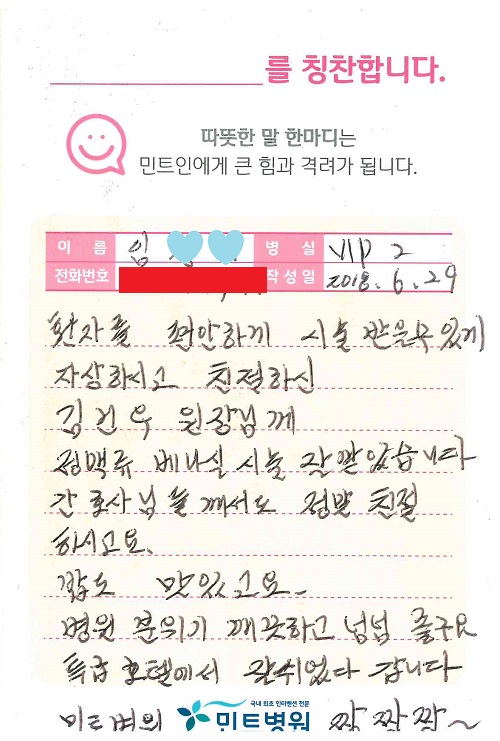 를 칭찬합니다.
따뜻한 말 한마디는
민트인에게 큰 힘과 격려가 됩니다.
이 름 임 병 실 VIP 2
전화번호 작성일 2018. 6. 29
환자를 편안하게 시술 받을수 있게
자상하시고 친절하신
김건우 원장님께
정맥류 베나실 시술 잘 받았습니다
간호사님들께서도 정말 친절
하시고요.
밥도 맛있고요.
병원 분위기 깨끗하고 넘넘 좋구요
특급 호텔에서 잘쉬었다 갑니다
국내 최초 인터벤션 전문
민트병원 민트병원 짝 짝 짝~